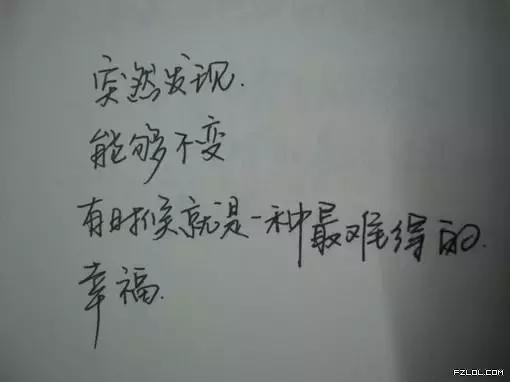 突然发现.
能够不变
有时候就是一种最难得的.
幸福.
FZLOL.COM